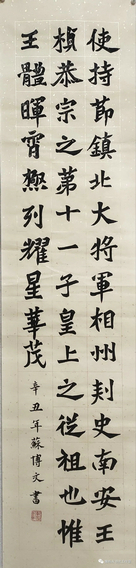 使持節鎮北大將軍相州刾史南安王
楨恭宗之第十一子皇上之從祖也惟
王體暉霄極列耀星華茂
辛丑年蘇博文書